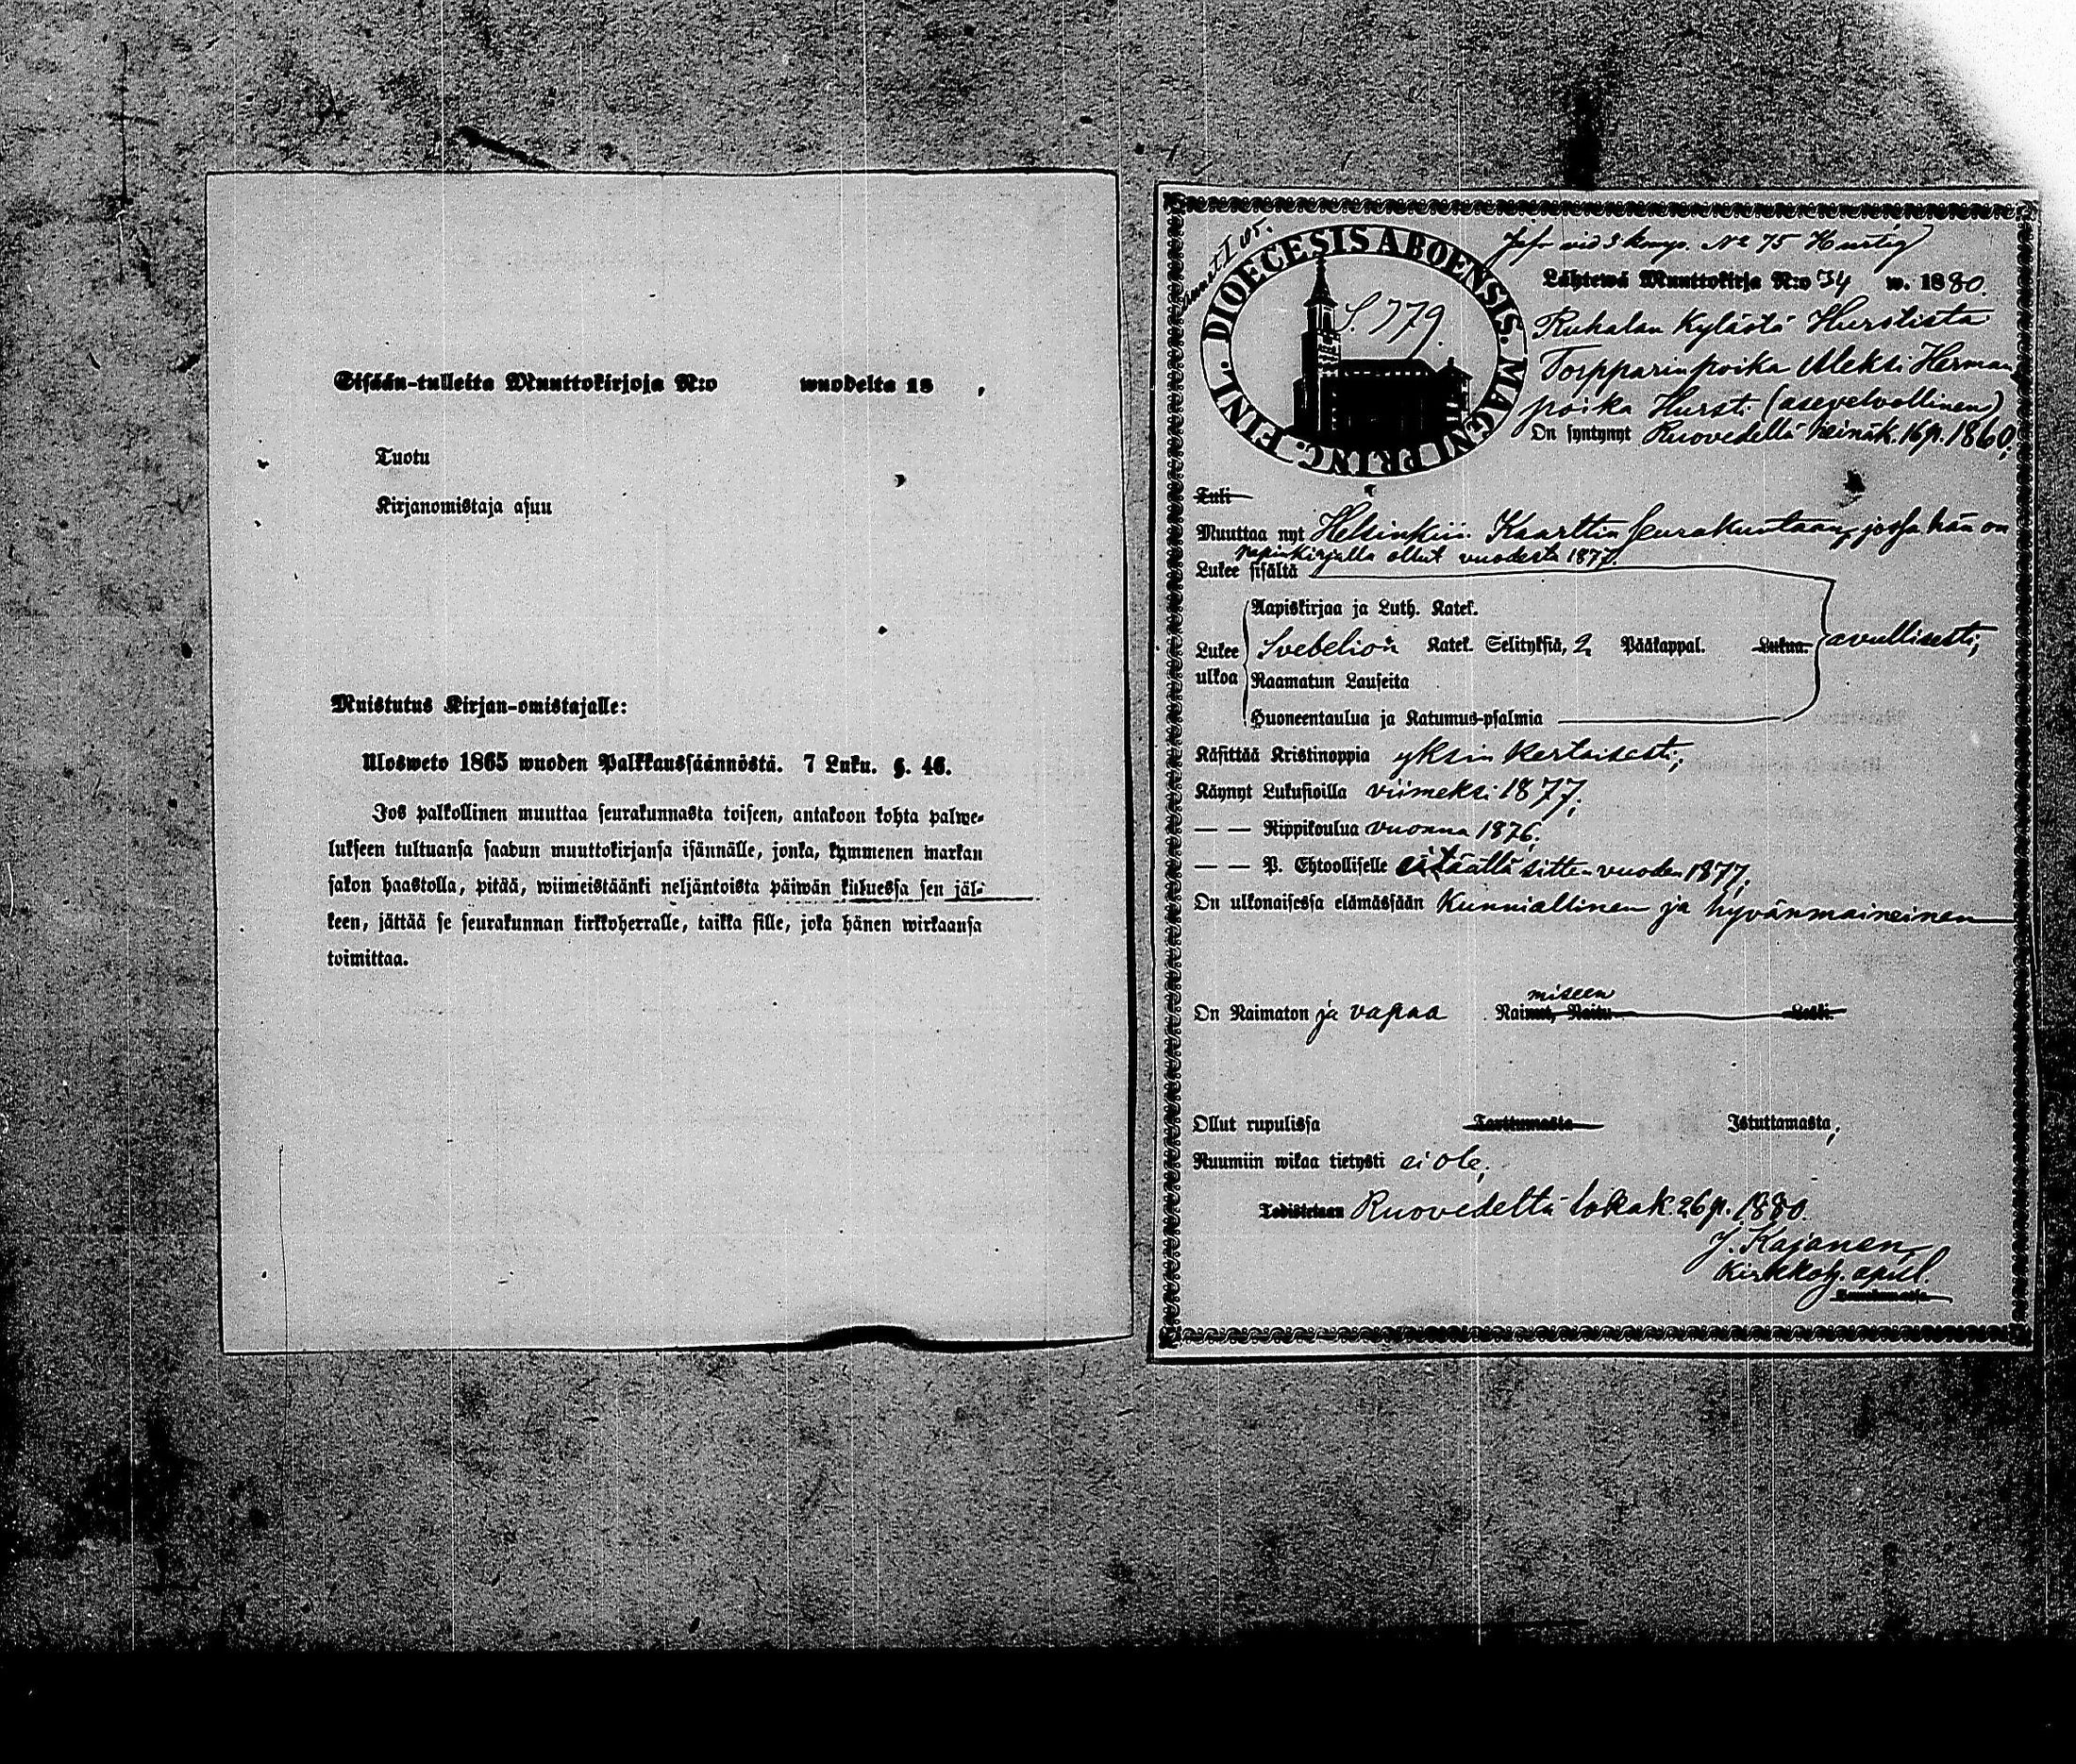 Sisään-tulleita Muuttokirjoja N:o wuodelta 18 ,
Tuotu
Kirjanomistaja asuu
Muistutus Kirjan-omistajalle:
Ulosweto 1865 wuoden Palkkaussäännöstä. 7 Luku. §. 46.
Jos palkollinen muuttaa seurakunnasta toiseen, antakoon kohta palwe-
lukseen tultuansa saadun muuttokirjansa isännälle, jonka, kymmenen markan
sakon haastolla, pitää, wiimeistäänki neljäntoista päiwän kuluessa sen jäl-
keen, jättää se seurakunnan kirkkoherralle, taikka sille, joka hänen wirkaansa
toimittaa.
DIOECESIS ABOENSIS. MAGNI PRINC. FINL.
S. 779.
vid 3 komp. No 75 Hurtig
Lähtewä Muuttokirja N:o 34 w. 1880.
Ruhalan Kylästä Hurstista
Torpparinpoika Aleksi Herman
poika Hursti (asevelvollinen)
On syntynyt Ruovedellä heinäk. 16 p. 1860;
Tuli
Muuttaa nyt Helsinkiin Kaartin seurakuntaan, jossa hän on
papinkirjalla ollut vuodesta 1877.
Lukee sisältä
Aapiskirjaa ja Luth. Katek.
Lukee ulkoa Svebelion Katek. Selityksiä, 2 Pääkappal. Lukua avullisesti;
Raamatun Lauseita
Huoneentaulua ja Katumus-psalmia
Käsittää Kristinoppia yksinkertaisesti;
Käynyt Lukusioilla viimeksi 1877;
— — Rippikoulua vuonna 1876;
— — P. Ehtoolliselle ei täällä sitten vuoden 1877;
On ulkonaisessa elämässään Kunniallinen ja hyvänmaineinen
miseen
On Naimaton ja vapaa Naimut, Naitu Leski.
Ollut rupulissa Tarttumasta Istuttamasta;
Ruumiin wikaa tietysti ei ole;
Todistetaan Ruovedeltä lokak. 26 p. 1880.
J. Kajanen
Kirkkoh. apul.